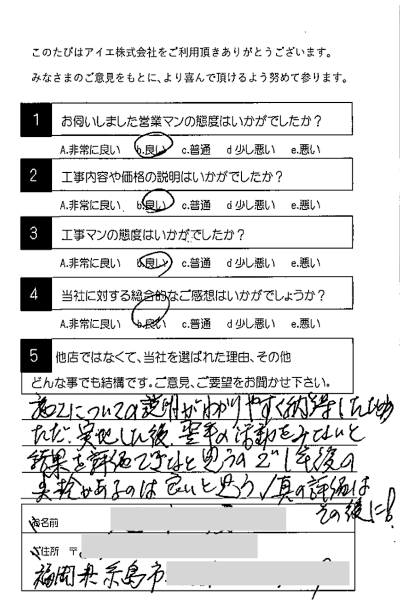 このたびはアイエ株式会社をご利用頂きありがとうございます。
みなさまのご意見をもとに、より喜んで頂けるよう努めて参ります。
1 お伺いしました営業マンの態度はいかがでしたか？
A.非常に良い b.良い c.普通 d 少し悪い e.悪い
2 工事内容や価格の説明はいかがでしたか？
A.非常に良い b.良い c.普通 d 少し悪い e.悪い
3 工事マンの態度はいかがでしたか？
A.非常に良い b.良い c.普通 d 少し悪い e.悪い
4 当社に対する総合的なご感想はいかがでしょうか？
A.非常に良い b.良い c.普通 d 少し悪い e.悪い
5 他店ではなくて、当社を選ばれた理由、その他
どんな事でも結構です。ご意見、ご要望をお聞かせ下さい。
施工についての説明がわかりやすく納得したため
ただ、実施した後、翌年の活動をみないと
結果を評価できないと思うので1年後の
点検があるのは良いと思う 真の評価は
その後に!
お名前
ご住所 〒
福岡県糸島市